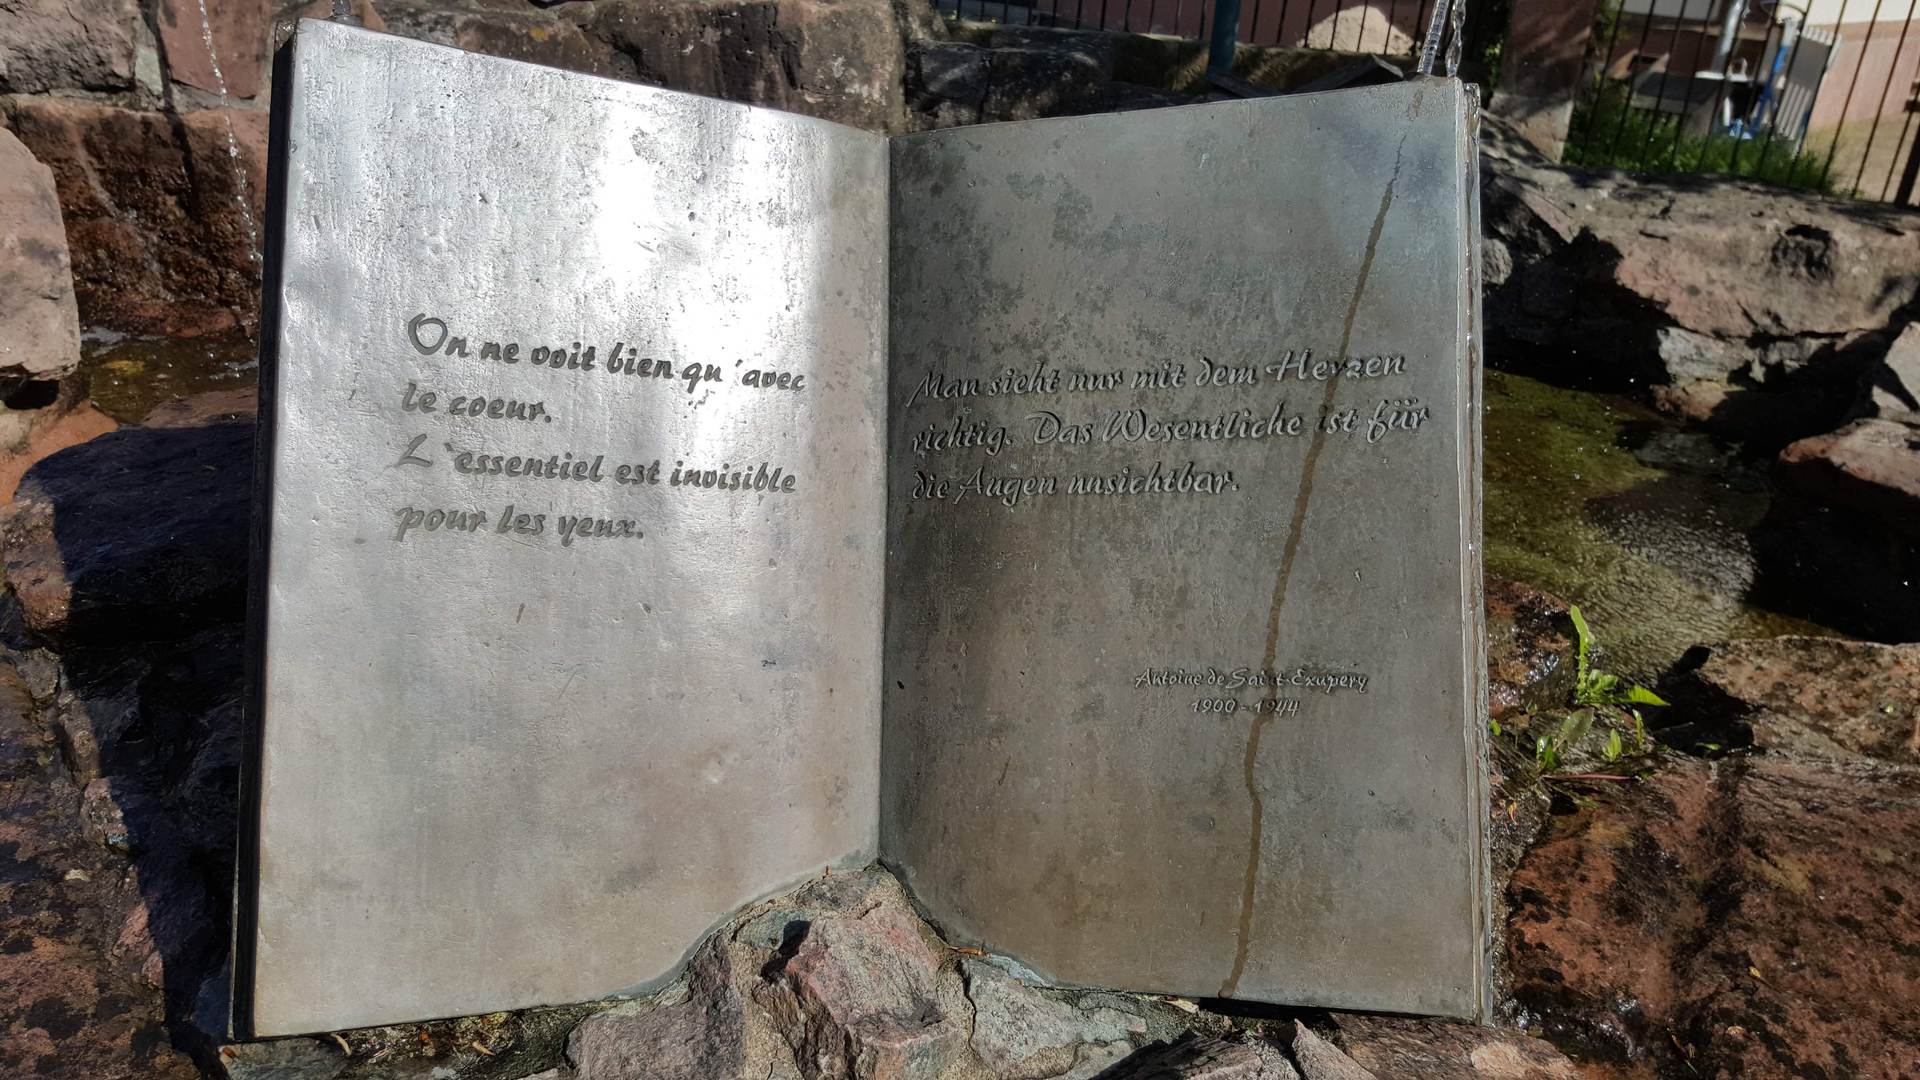 On ne voit bien qu´avec
le coeur.
L`essentiel est invisible
pour les yeux.
Man sieht nur mit dem Herzen
richtig. Das Wesentliche ist für
die Augen unsichtbar.
Antoine de Saint-Exupery
1900 - 1944